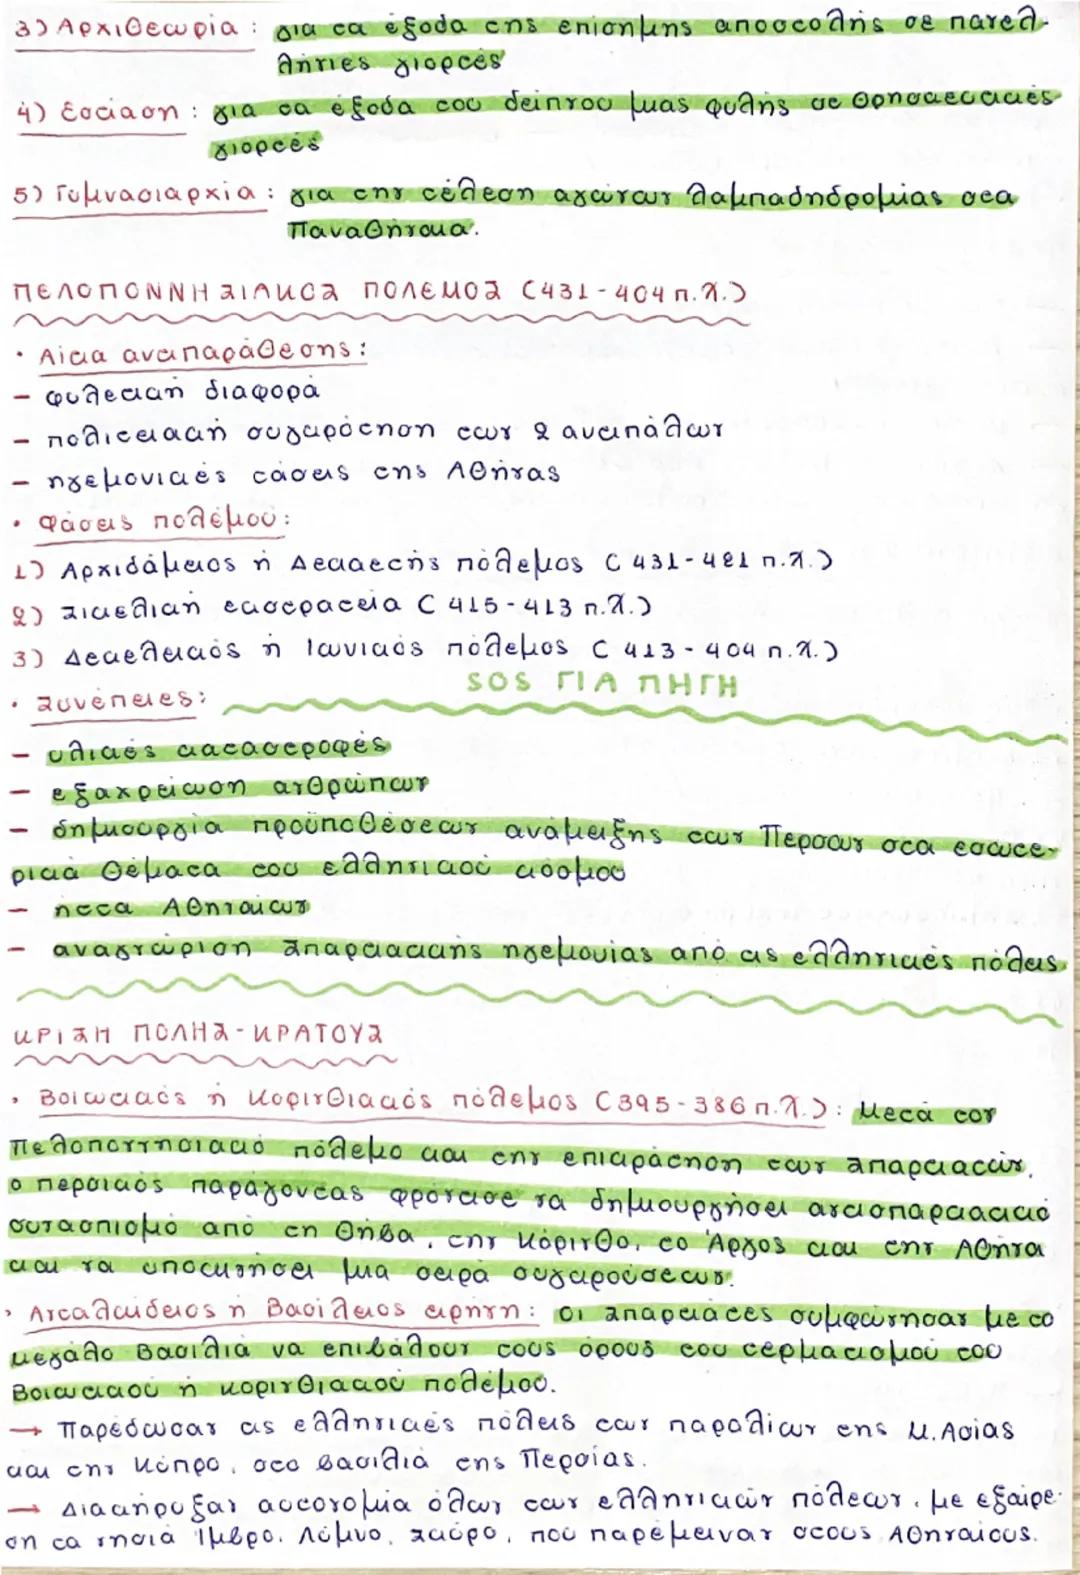 3) Αρχιθεωρία : για τα έξοδα της επίσημης αποστολής σε πανελ-
λήνιες γιορτές
4) Εστίαση : για τα έξοδα του δείπνου μιας φυλής σε θρησκευτικές
γιορτές
5) Γυμνασιαρχία : για την τέλεση αγώνων λαμπαδηδρομίας στα
Παναθήναια.
ΠΕΛΟΠΟΝΝΗΣΙΑΚΟΣ ΠΟΛΕΜΟΣ (431-404 π.Χ.)
· Αίτια αντιπαράθεσης:
- φυλετική διαφορά
- πολιτειακή συγκρότηση των 2 αντιπάλων
- ηγεμονικές τάσεις της Αθήνας
· Φάσεις πολέμου:
1) Αρχιδάμειος ή Δεκαετής πόλεμος (431-421 π.Χ.)
2) Σικελική εκστρατεία (415-413 π.Χ.)
3) Δεκελεικός ή Ιωνικός πόλεμος (413-404 π.Χ.)
SOS ΓΙΑ ΠΗΓΗ
· Συνέπειες:
- υλικές καταστροφές
- εξαχρείωση ανθρώπων
- δημιουργία προϋποθέσεων ανάμειξης των Περσών στα εσωτε-
ρικά θέματα του ελληνικού κόσμου
- ήττα Αθηναίων
- αναγνώριση Σπαρτιατικής ηγεμονίας από τις ελληνικές πόλεις
ΚΡΙΣΗ ΠΟΛΗΣ-ΚΡΑΤΟΥΣ
· Βοιωτικός ή Κορινθιακός πόλεμος (395-386 π.Χ.): Μετά τον
Πελοποννησιακό πόλεμο και την επικράτηση των Σπαρτιατών,
ο περσικός παράγοντας φρόντισε να δημιουργήσει αντισπαρτιατικό
συνασπισμό από τη Θήβα, την Κόρινθο, το Άργος και την Αθήνα
και να υποκινήσει μια σειρά συγκρούσεων.
· Ανταλκίδειος ή Βασίλειος ειρήνη: οι Σπαρτιάτες συμφώνησαν με το
μεγάλο βασιλιά να επιβάλουν τους όρους του τερματισμού του
Βοιωτικού ή κορινθιακού πολέμου.
→ Παρέδωσαν τις ελληνικές πόλεις των παραλίων της Μ. Ασίας
και την Κύπρο, στο βασιλιά της Περσίας.
→ Διακήρυξαν αυτονομία όλων των ελληνικών πόλεων, με εξαίρε-
ση τα νησιά Ίμβρο, Λήμνο, Σκύρο, που παρέμειναν στους Αθηναίους.